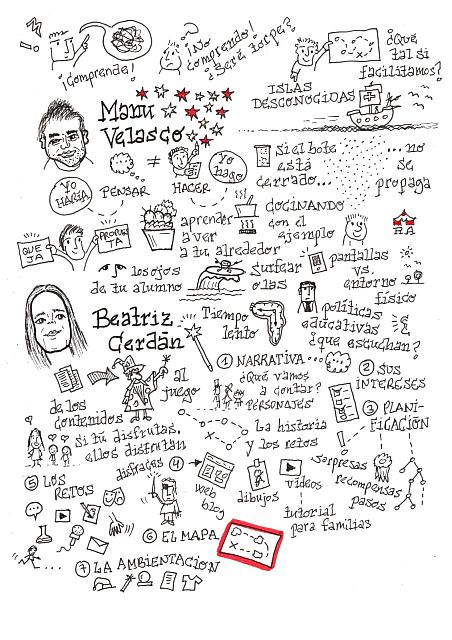 ¡Comprende!
¡No comprendo!
¿Seré torpe?
¿Qué tal si facilitamos?
ISLAS DESCONOCIDAS
Manu Velasco
YO HARÍA
PENSAR
≠
HACER
YO hago
si el bote está cerrado...
...no se propaga
QUEJA
PROPUESTA
aprender a ver a tu alrededor
COCINANDO con el ejemplo
los ojos de tu alumno
surfear olas
pantallas vs. entorno físico
Beatriz Cerdán
Tiempo lento
políticas educativas ¿que escuchan?
de los contenidos
al juego
① NARRATIVA...
¿Qué vamos a contar?
PERSONAJES
② SUS INTERESES
si tú disfrutas, ellos disfrutan
La historia y los retos
③ PLANIFICACIÓN
sorpresas
recompensas
pasos
disfraces
④
web blog
dibujos
videos
tutorial para familias
⑤ LOS RETOS
⑥ EL MAPA
⑦ LA AMBIENTACIÓN